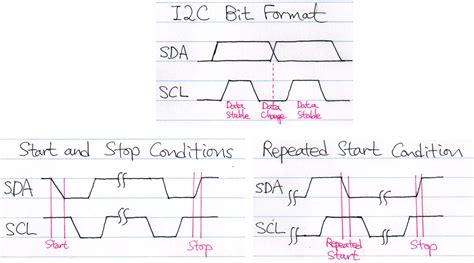 I2C Bit Format
SDA
SCL
Data Stable
Data Change
Data Stable
Start and Stop Conditions
SDA
SCL
Start
Stop
Repeated Start Condition
SDA
SCL
Repeated Start
Stop